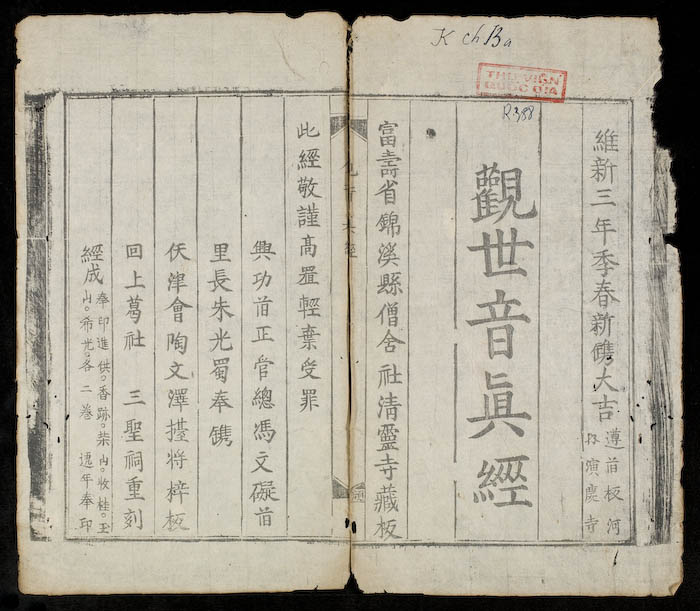 K ch Ba
THƯ VIỆN
QUỐC GIA
R.388
維新三年季春新鐫大吉
遵前板河
內演慶寺
觀世音眞經
富壽省錦溪縣僧舍社清靈寺藏板
此經敬謹高置輕棄受罪
興功前正管總馮文礙前
里長朱光蜀奉鐫
仸津會陶文澤擡將梓板
回上葛社 三聖祠重刻
經成
奉印進供香跡。柴內。牧桂。玉
內。希光。各二卷 遞年奉印
1